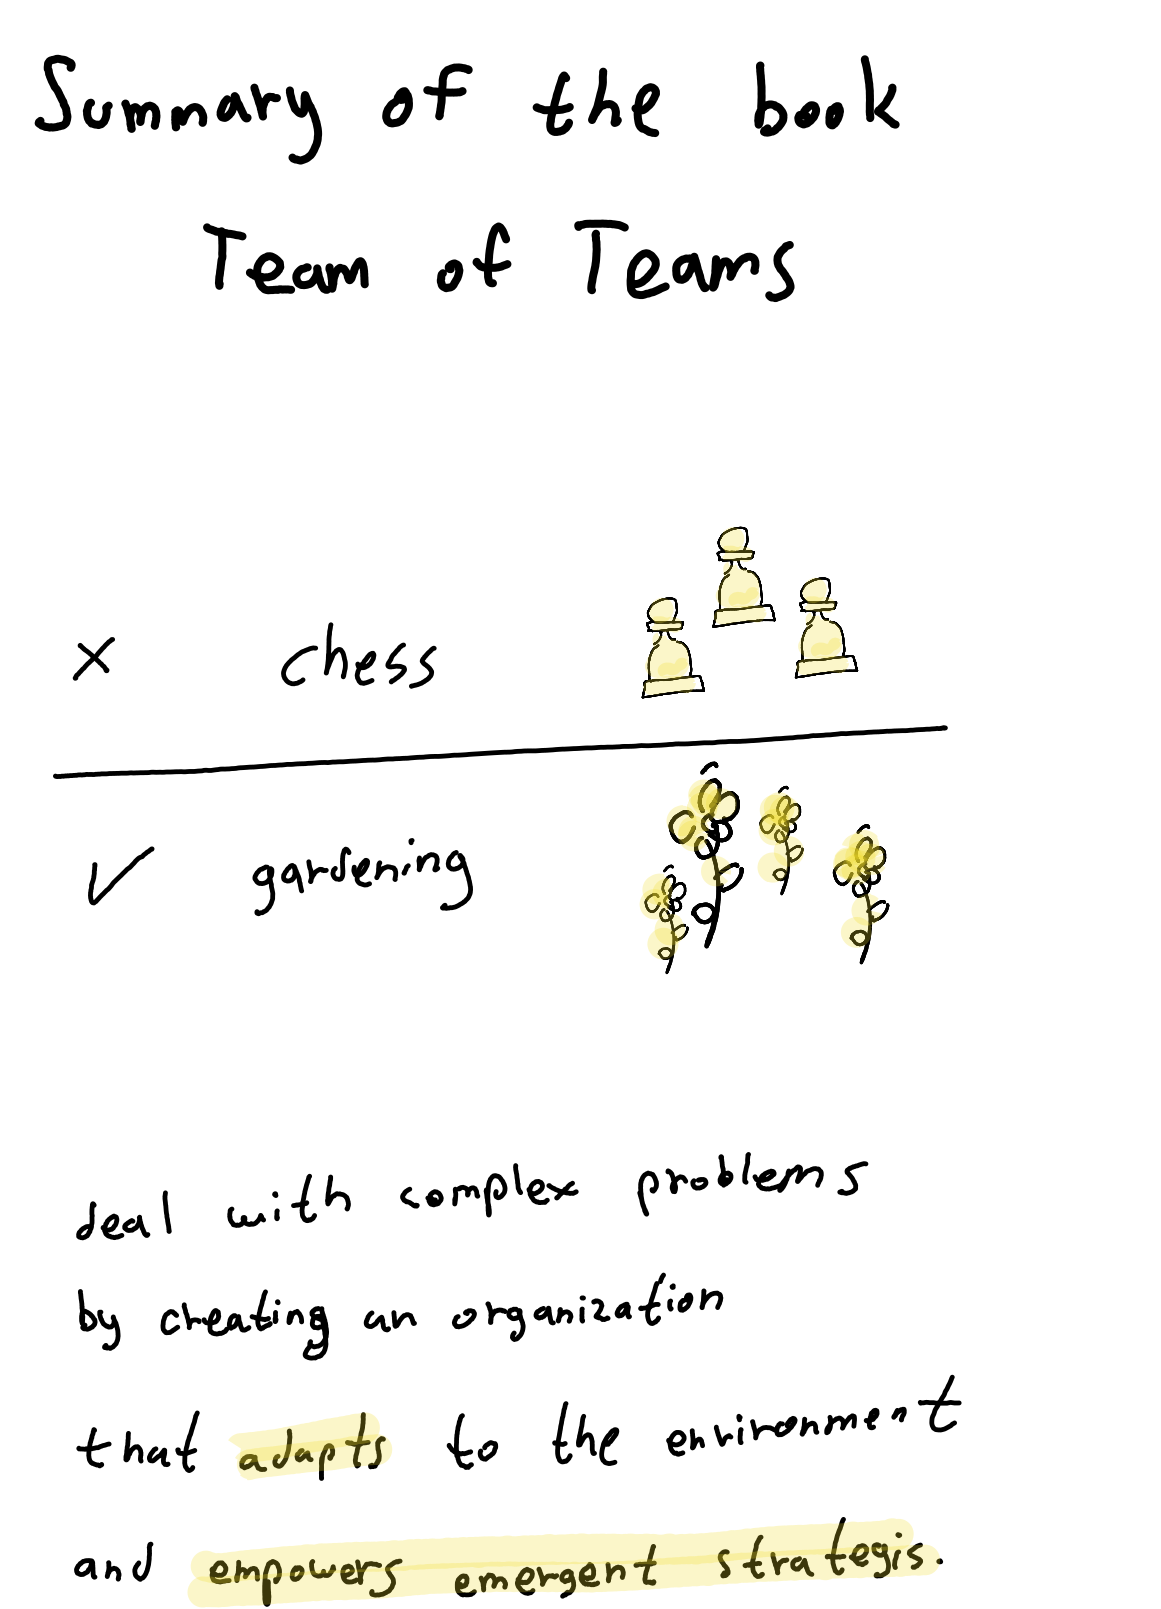 Summary of the book
Team of Teams
× chess
✓ gardening
deal with complex problems
by creating an organization
that adapts to the environment
and empowers emergent strategis.